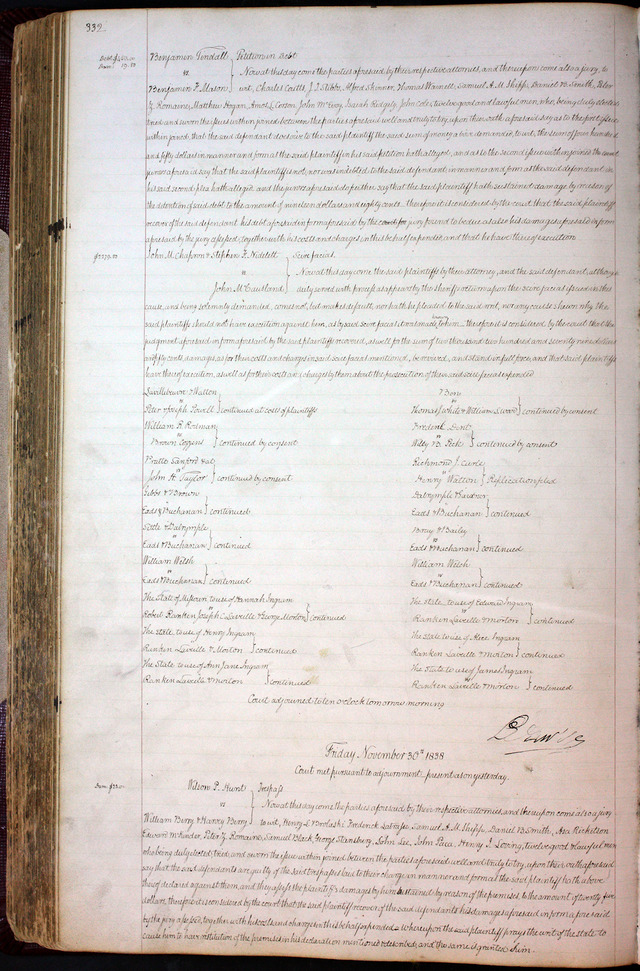 332
Benjamin Tindall } Petition in Debt
vs
Benjamin F. Mason
Debt $450.00
Dam. 19.80
Now at this day come the parties aforesaid by their respective attornies, and thereupon come also a jury, to
wit, Charles Coitts, J. J. Stibbs, Alfred Skinner, Thomas Warnell, Samuel A. M. Shipps, Daniel B. Smith, Peter
Z. Romaine, Matthew Hogan, Amos L. Corton, John McEvoy, Isaiah Ridgely, John Cole, twelve good and lawful men, who, being duly elected
tried and sworn the issues within joined between the parties aforesaid well and truly to try, upon their oaths aforesaid say as to the first issue
within joined, that the said defendant does owe to the said plaintiff the said sum of money above demanded, to wit, the sum of four hundred
and fifty dollars in manner and form as the said plaintiff in his said petition hath alleged, and as to the second issue within joined the
jurors aforesaid say that the said plaintiff is not, nor was indebted to the said defendant in manner and form as the said defendant in
his said second plea hath alleged. and the jurors aforesaid do further say that the said plaintiff hath sustained damage by reason of
the detention of said debt to the amount of nineteen dollars and eighty cents. Therefore it is considered by the court that the said plaintiff
recover of the said defendant his debt aforesaid in form aforesaid by the jury found to be due as also his damages aforesaid in form
aforesaid by the jury assessed, together with his costs and charges in this behalf expended, and that he have thereof execution.
John M. Chapron & Stephen F. Nidelet } Scire facias.
vs
John M. Eastland
$2279.50
Now at this day come the said plaintiffs by their attorney, and the said defendant, although
duly served with process as appears by the sheriff's return upon the scire facias issued in this
cause, and being solemnly demanded, comes not, but makes default, nor hath he pleaded to the said writ, nor any cause shewn why the
said plaintiffs should not have execution against him, as by said scire facias it is commanded to him therefore it is considered by the court that the
judgment aforesaid in form aforesaid by the said plaintiffs recovered, as well for the sum of two thousand two hundred and seventy nine dollars
and fifty cents damages, as for their costs and charges in said scire facias mentioned, be revived, and stand in full force, and that said plaintiffs
have thereof execution, as well as for their costs and charges by them about the prosecution of their said scire facias expended.
& Walton
vs
Peter & Joseph Powell } continued at costs of plaintiffs
William R. Rodman
vs
Brown Coggens } continued by consent
Pratte Sanford & al
vs
John H. Taylor } continued by consent
Gibbs & Brown
vs
Eads & Buchanan } continued
Settle & Dalrymple
vs
Eads & Buchanan } continued
William Welsh
vs
Eads & Buchanan } continued
The State of Missouri to use of Hannah Ingram
vs
Robert Ranken Joseph C. Laveille & George Morton } continued
The State to use of Henry Ingram
Ranken Laveille & Morton } continued
The State to use of Ann Jane Ingram
Ranken Laveille & Morton } continued
vs
Thomas White & William S. Ward } continued by consent
Frederick Dent
vs
Wiley & B. Peck } continued by consent
Richmond J. Curle
vs
Henry Walton } Replication filed
Dalrymple & Gardner
vs
Eads & Buchanan } continued
Berry & Bailey
vs
Eads & Buchanan } continued
William Welsh
vs
Eads & Buchanan } continued
The State to use of Edward Ingram
vs
Ranken Laveille & Morton } continued
The State to use of Alice Ingram
vs
Ranken Laveille & Morton } continued
The State to use of James Ingram
vs
Ranken Laveille & Morton } continued
Court adjourned to ten o'clock tomorrow morning
Friday November 30th 1838
Court met pursuant to adjournment present as on yesterday.
Wilson P. Hunt } Trespass
vs
William Berry & Harvey Berry
Now at this day come the parties aforesaid by their respective attornies and thereupon come also a jury
to wit, Henry L. Brolaski Frederick Labeaume Samuel A. M. Shipps, Daniel B. Smith, Asa Ricketson
Edward McKinder, Peter Z. Romaine, Samuel Black, George Stansbury, John Lee, John Pacca, Henry S. Loving, twelve good & lawful men
who being duly elected, tried and sworn the issue within joined between the parties aforesaid well and truly to try, upon their oaths aforesaid
say that the said defendants are guilty of the said trespasses laid to their charge in manner and form as the said plaintiff hath above
thereof declared against them, and they assess the plaintiff's damages by him sustained by reason of the premises to the amount of twenty five
dollars, therefore it is considered by the court that the said plaintiff recover of the said defendants his damages aforesaid in form aforesaid
by the jury assessed, together with his costs and charges in this behalf expended. Whereupon the said plaintiff prays the writ of the state to
cause him to have restitution of the premises in his declaration mentioned & described, and the same is granted him.